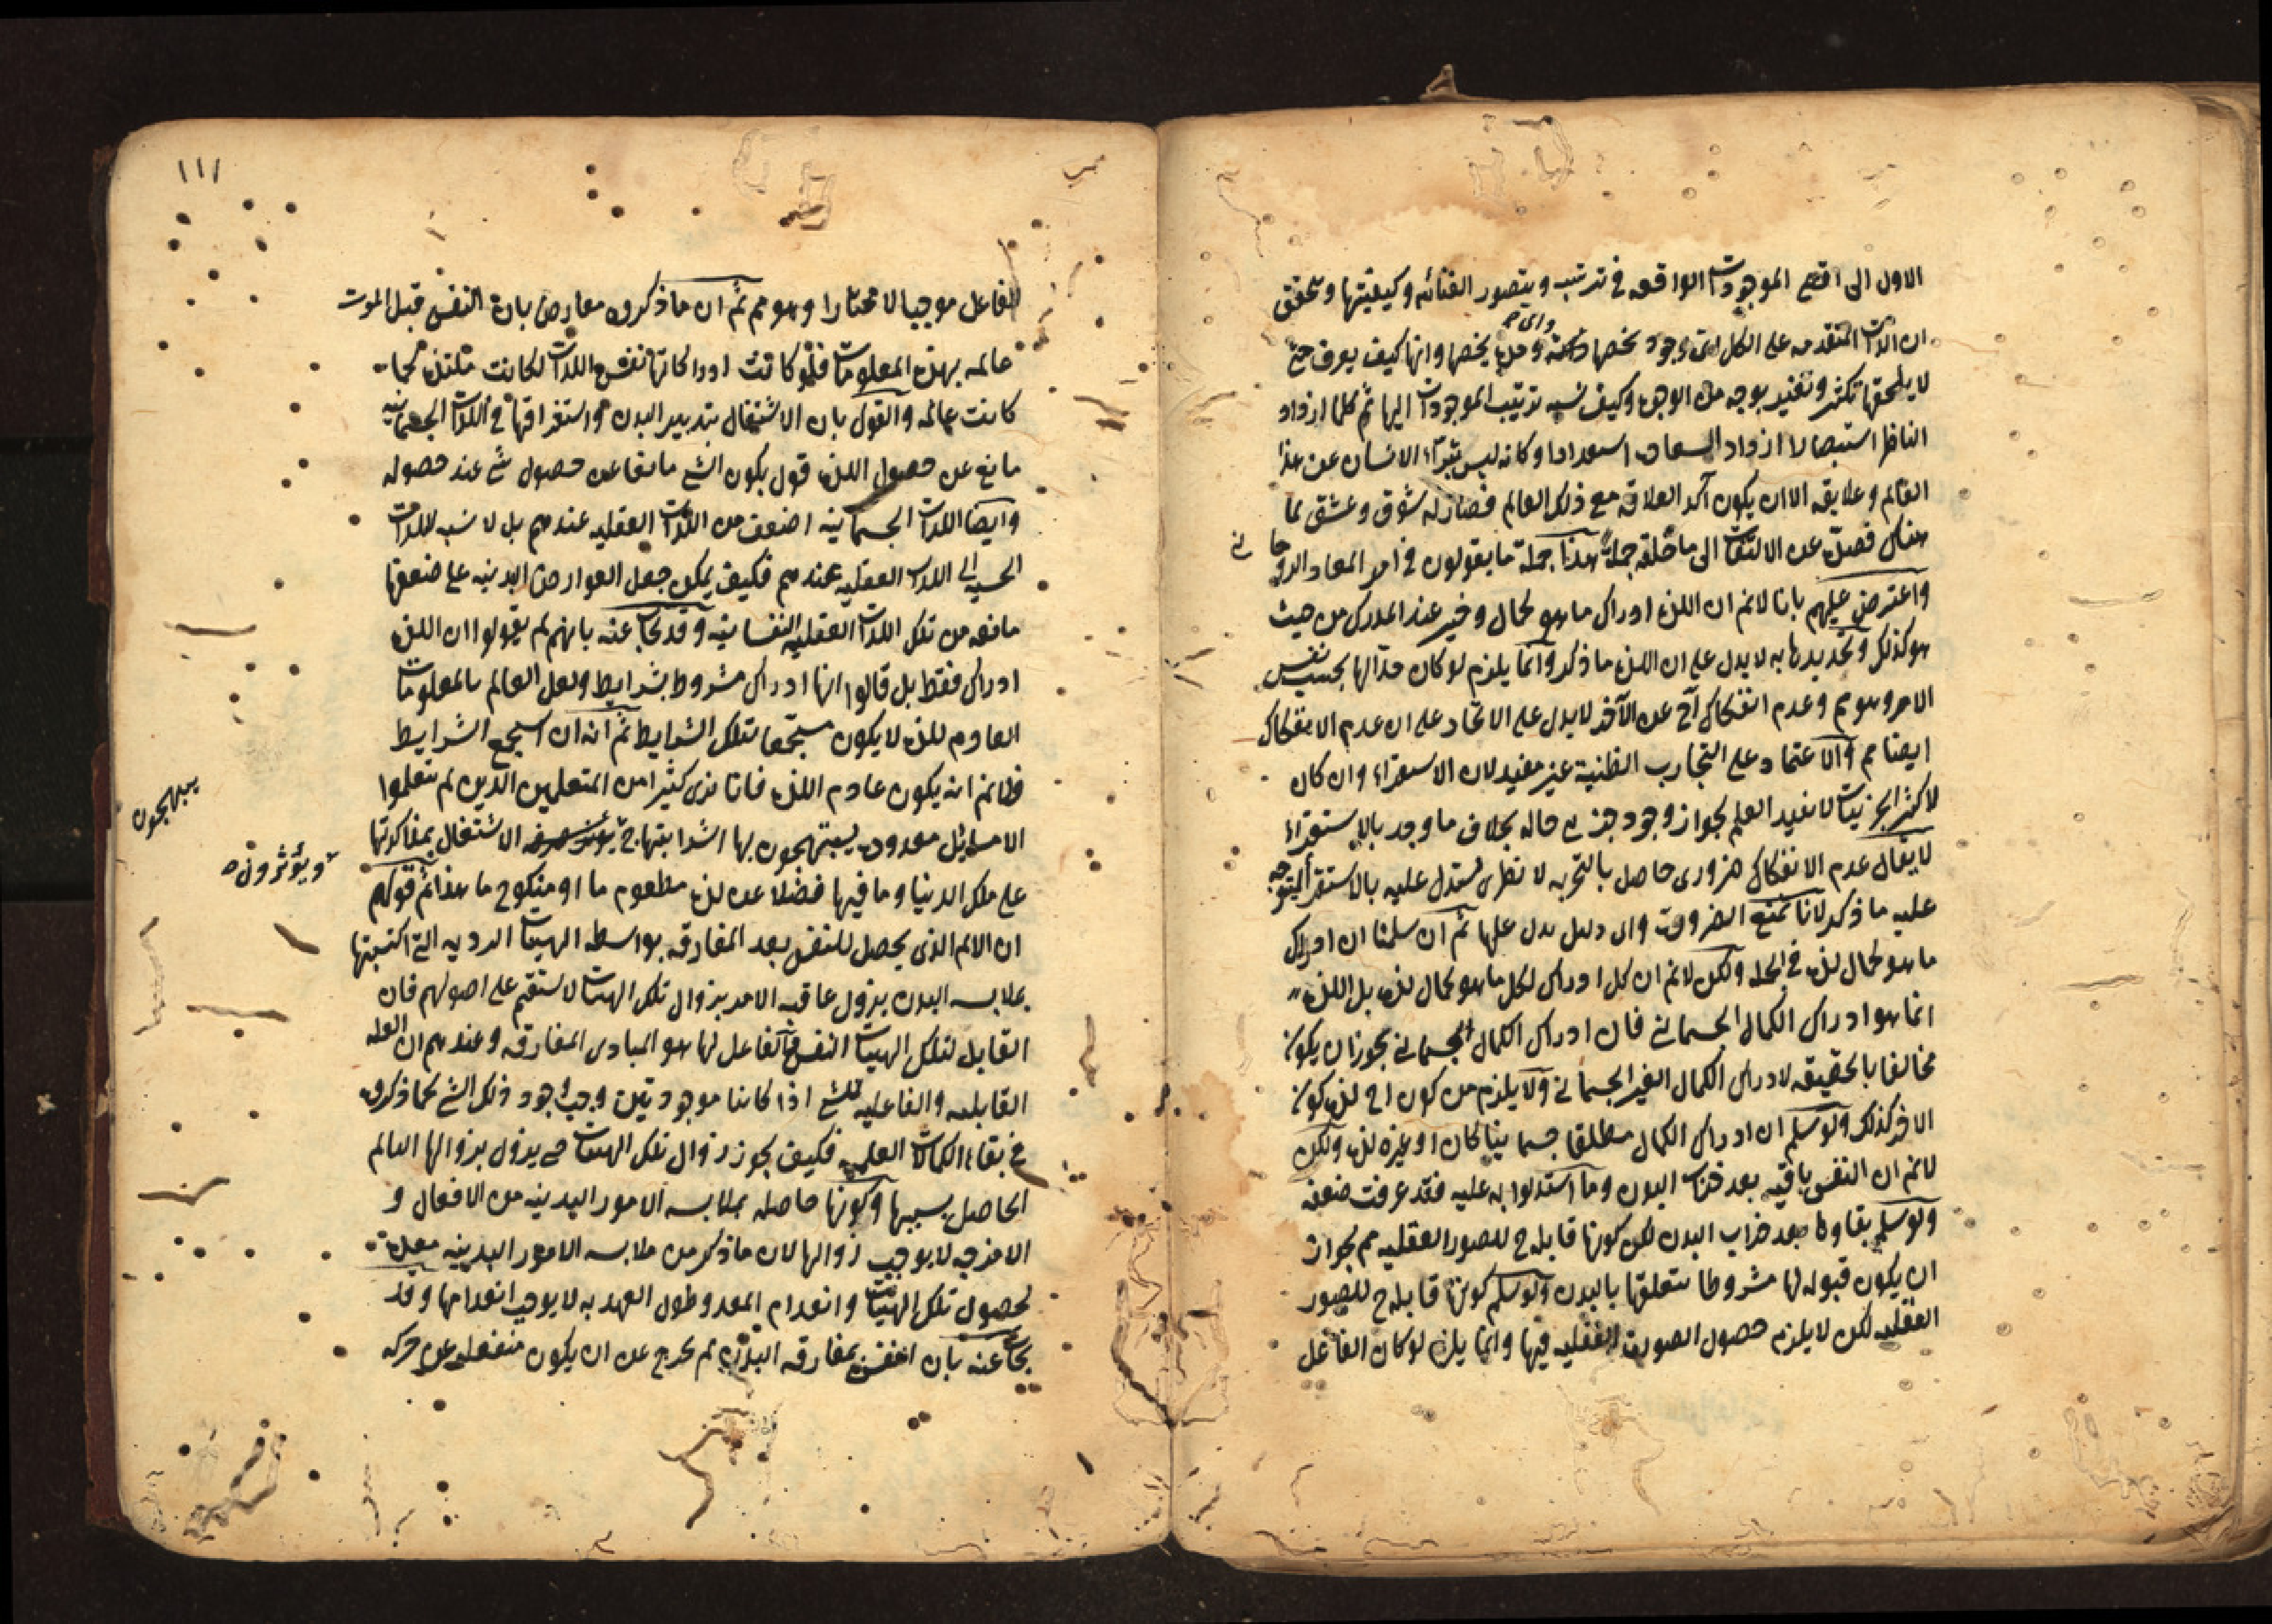 الاول الى اقصى الموجودات الواقعه في ترتيبه ويتصور الغنائه وكيفيتها وتحقق
ان الذات المتقدمه على الكل اى وجود يخصها واى وحدة يخصها وانها كيف يعرف حتى
لا يلحقها تكثر وتغير بوجه من الوجوه وكيف نسبه ترتيب الموجودات اليها ثم كلما ازداد
الناظر استبصارا ازداد للسعاده استعدادا وكانه ليس يتبرأ الانسان عن هذا
العالم وعلايقه الا ان يكون اكد العلاقه مع ذلك العالم فصار له شوق وعشق لما
هناك فصده عن الالتفات الى ما خلفه جملة هذا جملة ما يقولون في امر المعاد الروحانى
واعترض عليهم بانا لانم ان اللذه ادراك ما هو كمال وخير عند المدرك من حيث
هو كذلك وتحديدها به لا يدل على ان اللذه ما ذكر وانما يلزم لو كان حدا لها بحسب نفس
الامر وهو مم وعدم انفكاك احد عن الاخر لا يدل على الاتحاد على ان عدم الانفكاك
ايضا مم والاعتماد على التجارب الظنية غير مفيد لان الاستقراء وان كان
لاكثر الجزئيات لا يفيد العلم لجواز وجود جزئى حاله بخلاف ما وجد بالاستقراء
لا يقال عدم الانفكاك ضرورى حاصل بالتجربه لا نظرى يستدل عليه بالاستقرا ليتوجه
عليه ما ذكر لانا نمنع الضرورة واى دليل يدل عليها ثم ان سلمنا ان ادراك
ما هو كمال لذه في الجمله ولكن لانم ان كل ادراك لكل ما هو كمال لذه بل اللذه
انما هو ادراك الكمال الجسمانى فان ادراك الكمال الجسمانى يجوز ان يكون
مخالفا بالحقيقه لادراك الكمال الغير الجسمانى ولا يلزم من كون احد لذه كون
الاخر كذلك ولو سلم ان ادراك الكمال مطلقا جسمانيا كان او غيره لذه ولكن
لانم ان النفس باقيه بعد خراب البدن وما استدلوا به عليه فقد عرفت ضعفه
ولو سلم بقاوها بعد خراب البدن لكن كونها قابله ح للصور العقليه مم لجواز
ان يكون قبوله لها مشروطا بتعلقها بالبدن ولو سلم كونها قابله ح للصور
العقليه لكن لا يلزم حصول الصورة العقليه فيها وانما يلزم لو كان الفاعل
١١١
الفاعل موجبا لا مختارا وهو مم ثم ان ما ذكروه معارض بان النفس قبل الموت
عالمه بهذه المعلومات فلو كانت ادراكاتها نفس اللذات لكانت ملتذه كما
كانت عالمه والقول بان الاشتغال بتدبير البدن واستغراقها في اللذات الجسمانيه
مانع عن حصول اللذه قول بكون الشئ مانعا عن حصول شئ عند حصوله
وايضا اللذات الجسمانيه اضعف من اللذات العقليه عندهم بل لا نسبه للذات
الحسيه الى اللذات العقليه عندهم فكيف يمكن جعل العوارض البدنيه على ضعفها
مانعه من تلك اللذات العقليه النفسانيه وقد يجاب عنه بانهم لم يقولوا ان اللذه
ادراك فقط بل قالوا انها ادراك مشروط بشرايط ولعل العالم بالمعلومات
العادم للذه لا يكون مستجمعا لتلك الشرايط ثم انه ان استجمع الشرايط
فلانم انه يكون عادم اللذه فانا نرى كثيرا من المتعلمين الذين لم يتعلموا
الا مسايل معدوده يبتهجون بها اشد ابتهاج الاشتغال بمذاكرتها
يبتهجون
ويؤثرون
على ملك الدنيا وما فيها فضلا عن لذه مطعوم ما او منكوح ما هذا ثم قولهم
ان الالم الذى يحصل للنفس بعد المفارقه بواسطه الهيئات الرديه التى اكتسبتها
بملابسه البدن يزول عاقبه الامر بزوال تلك الهيئات لا يستقيم على اصولهم فان
القابل لتلك الهيئات النفس والفاعل لها هو المبادى المفارقه وعندهم ان العله
القابليه والفاعليه للشئ اذا كانتا موجودتين وجب وجود ذلك الشئ كما ذكروه
في بقاء الكمالات العلميه فكيف يجوز زوال تلك الهيئات حتى يزول بزوالها العالم
الحاصل بسببها وكونها حاصله بملابسه الامور البدنيه من الافعال و
الامزجه لا يوجب زوالها لان ما ذكر من ملابسه الامور البدنيه معده
لحصول تلك الهيئات وانعدام المعد وطول العهد به لا يوجب انعدامها وقد
يجاب عنه بان النفس بمفارقه البدن لم يخرج عن ان يكون منفعله عن حركه